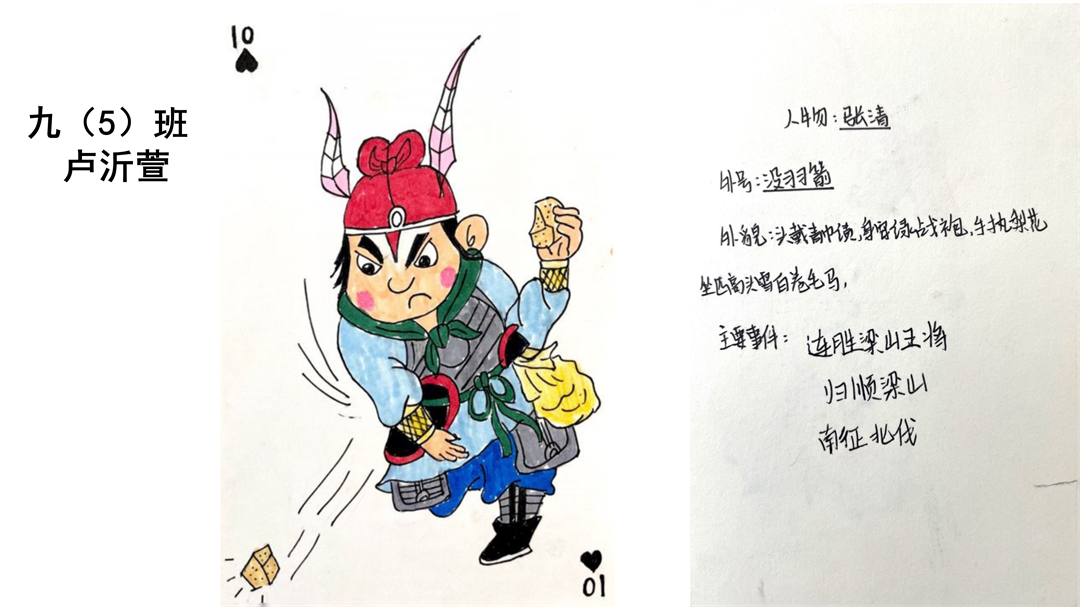 九（5）班
卢沂萱
10
人物：张清
外号：没羽箭
外貌：头戴青巾帻，身穿绿战袍，手执梨花
坐匹高头雪白卷毛马，
主要事件：连胜梁山王将
归顺梁山
南征北伐
10